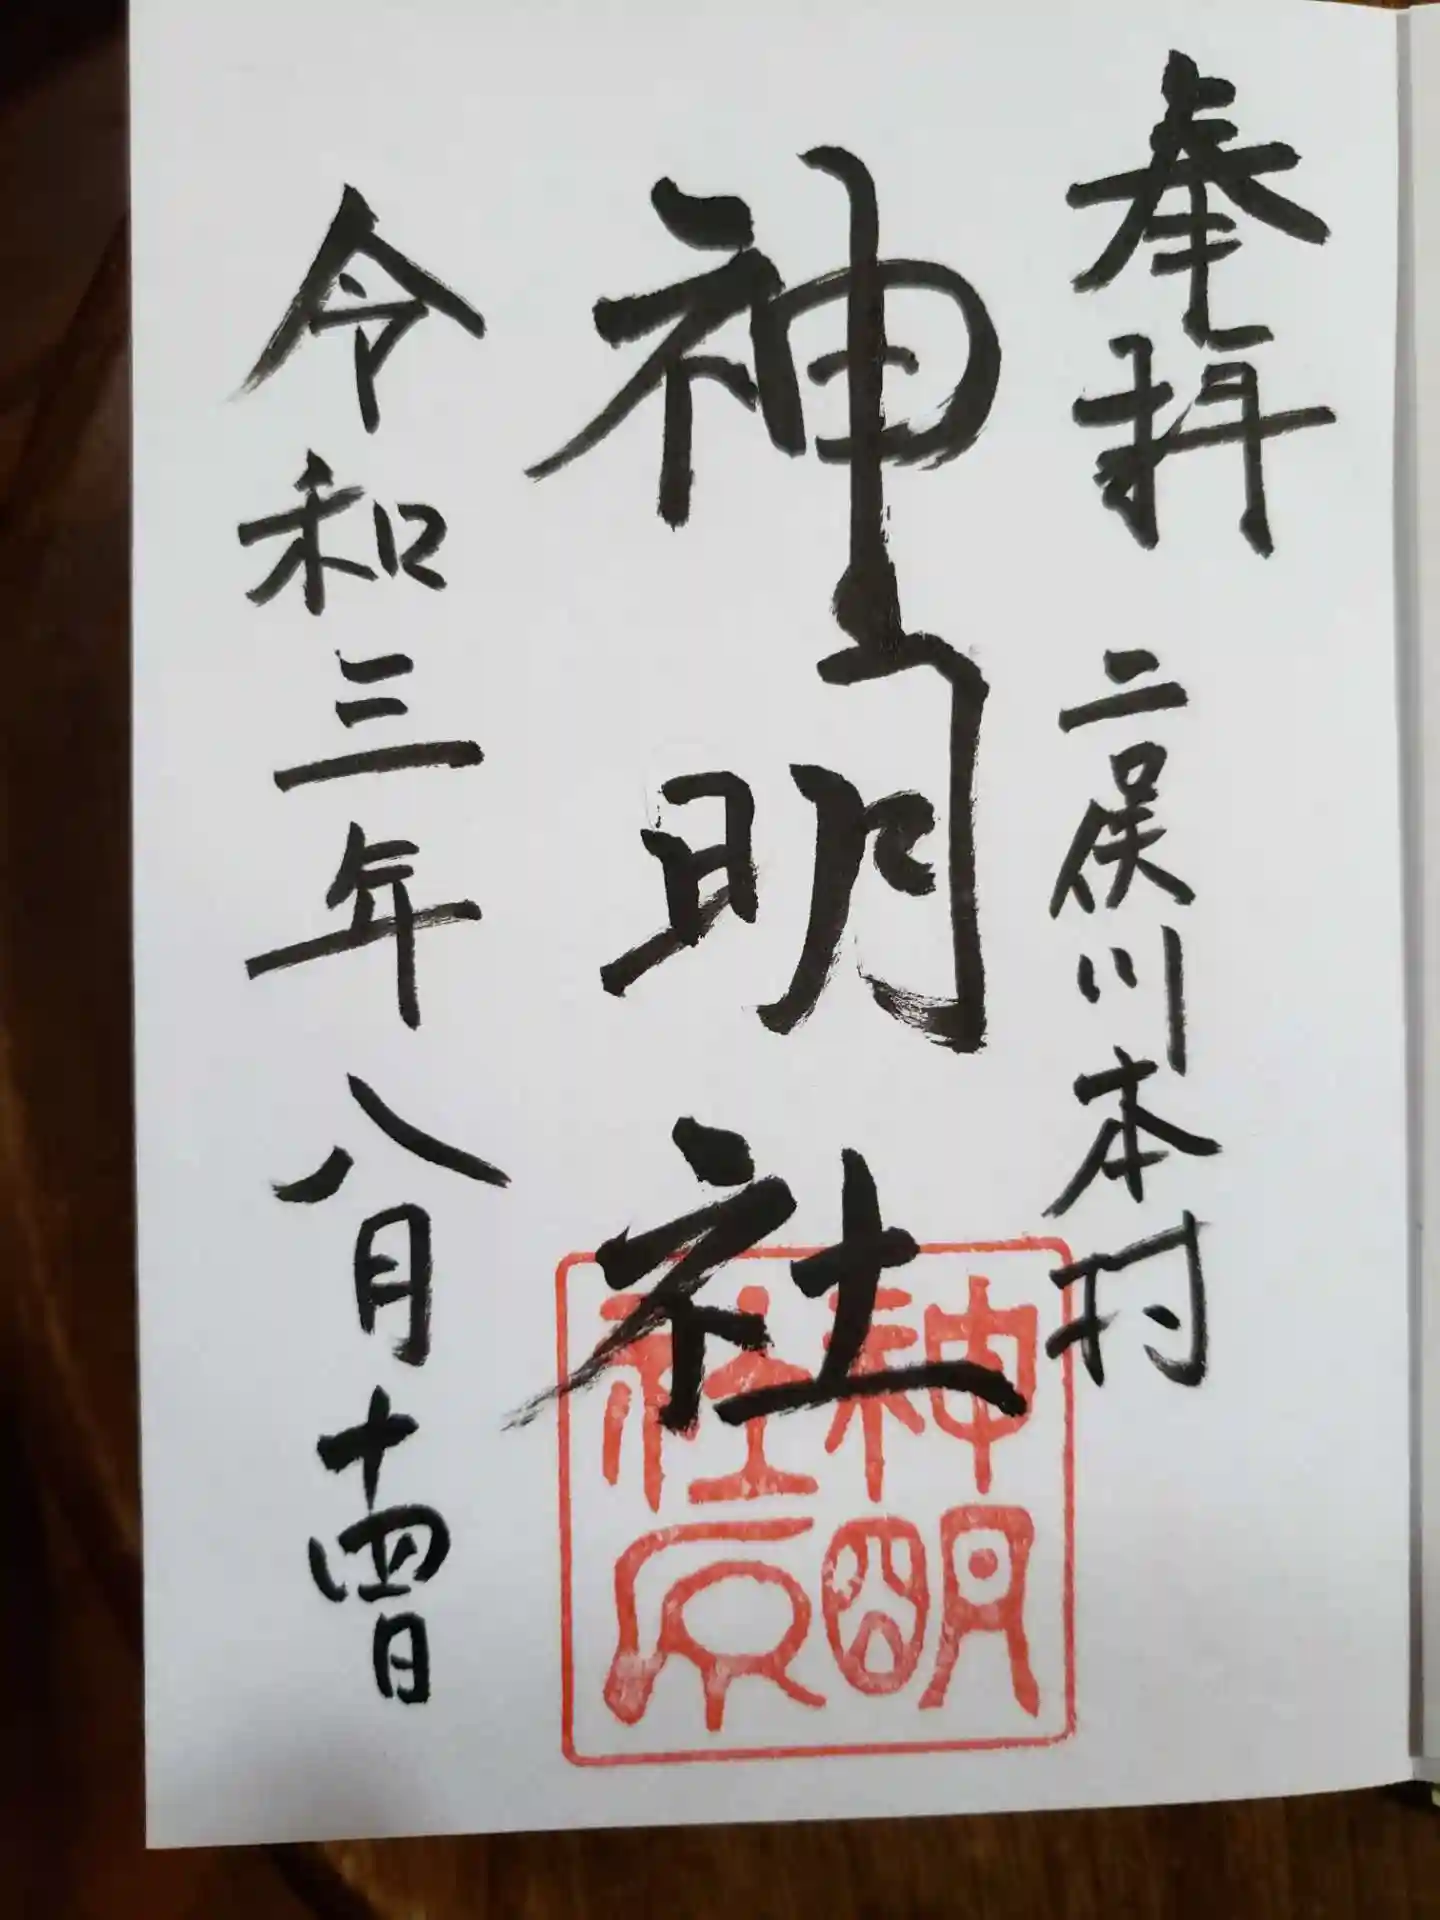 奉拝
二俣川本村
神明社
令和三年八月十四日
神明
社印